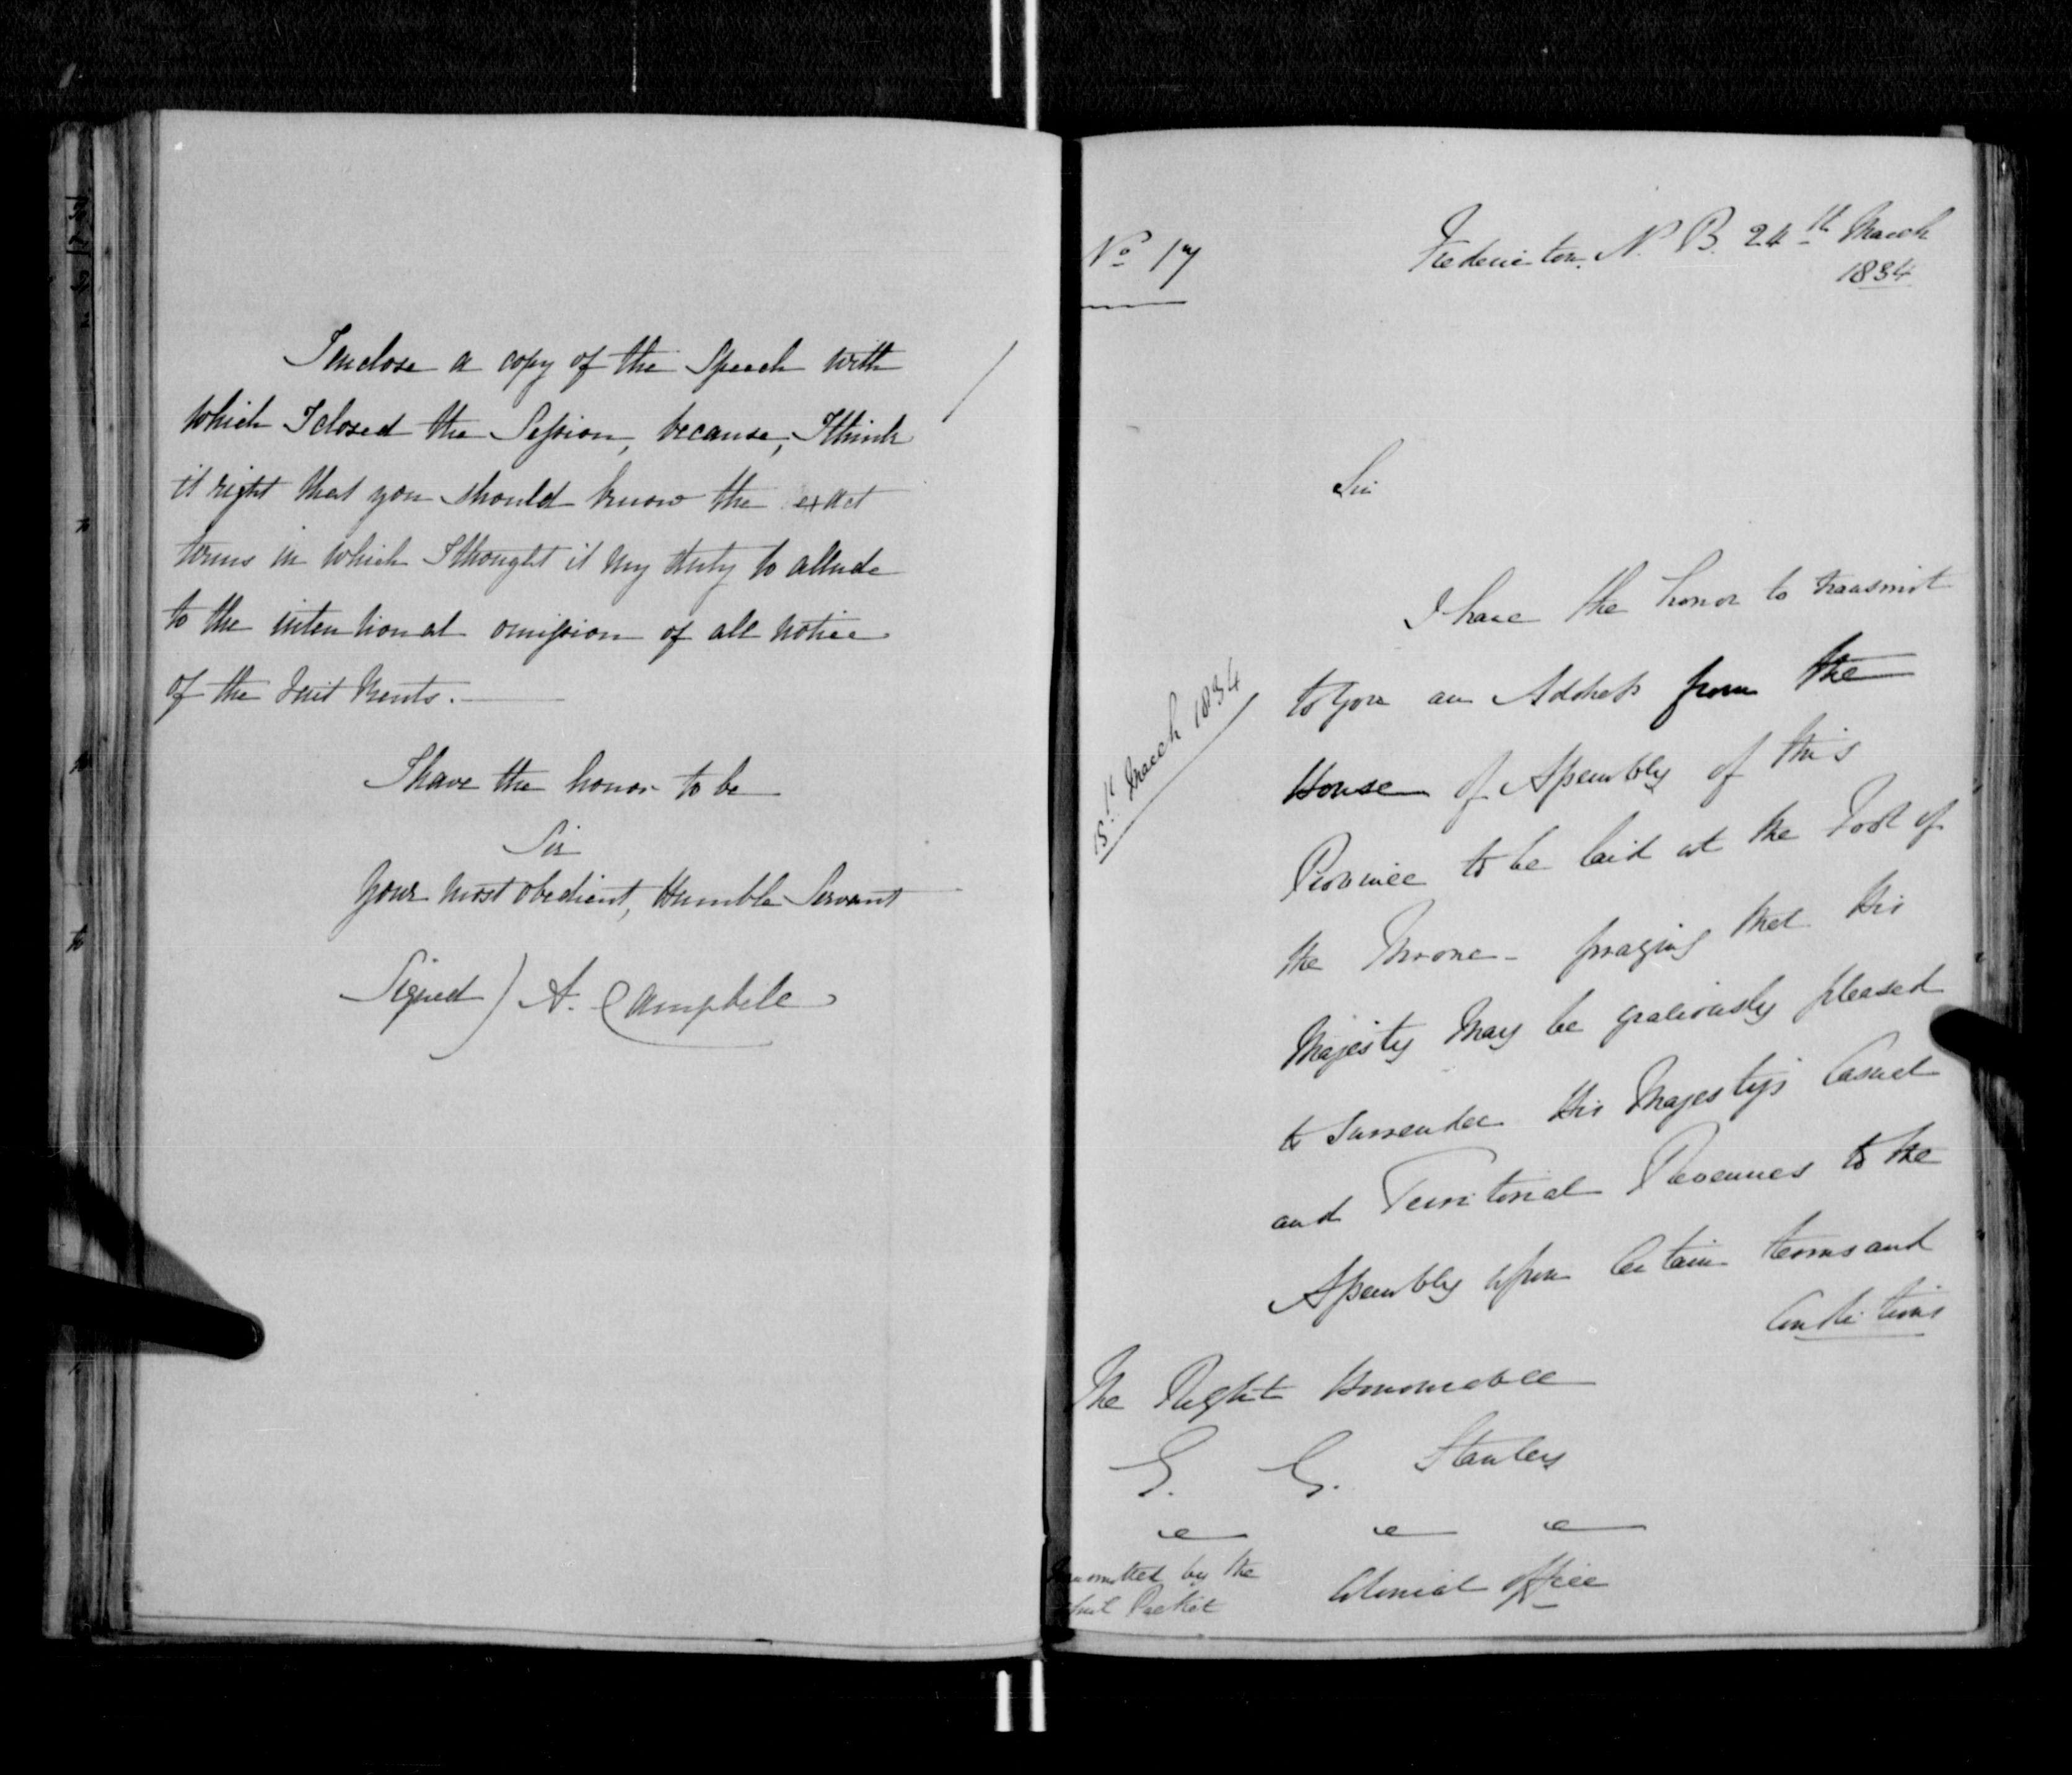 I enclose a copy of the Speech with
which I closed the Session, because, I think
it right that you should know the exact
terms in which I thought it my duty to allude
to the intentional omission of all notice
of the Quit Rents.
I have the honor to be
Sir
Your most obedient, Humble Servant
Signed) A. Campbell
No 17
Fredericton, N. B. 24th March
1834
Sir
I have the honor to transmit
to you an Address from the
House of Assembly of this
Province to be laid at the Foot of
the Throne - praying that His
Majesty May be graciously pleased
to Surrender His Majesty's Casual
and Territorial Revenues to the
Assembly upon Certain terms and
Conditions
15th March 1834
The Right Honourable
E. G. Stanley
Colonial Office
by the
Packet